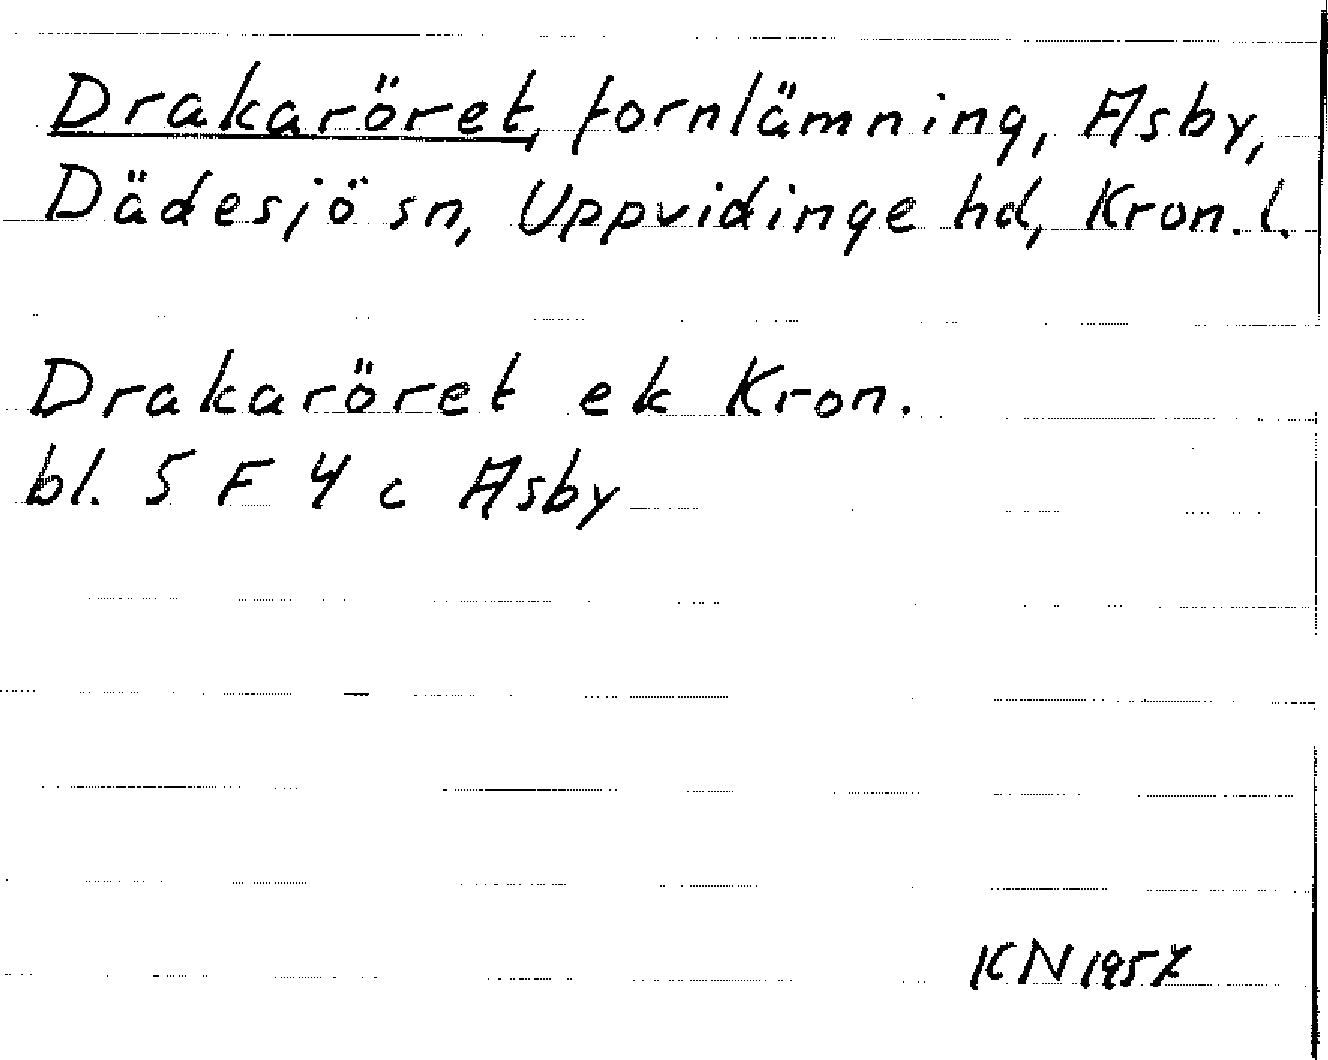 Drakaröret, fornlämning, Asby,
Dädesjö sn, Uppvidinge hd, Kron. l.
Drakaröret ek Kron.
bl. 5 F 4 c Asby
KN 1957